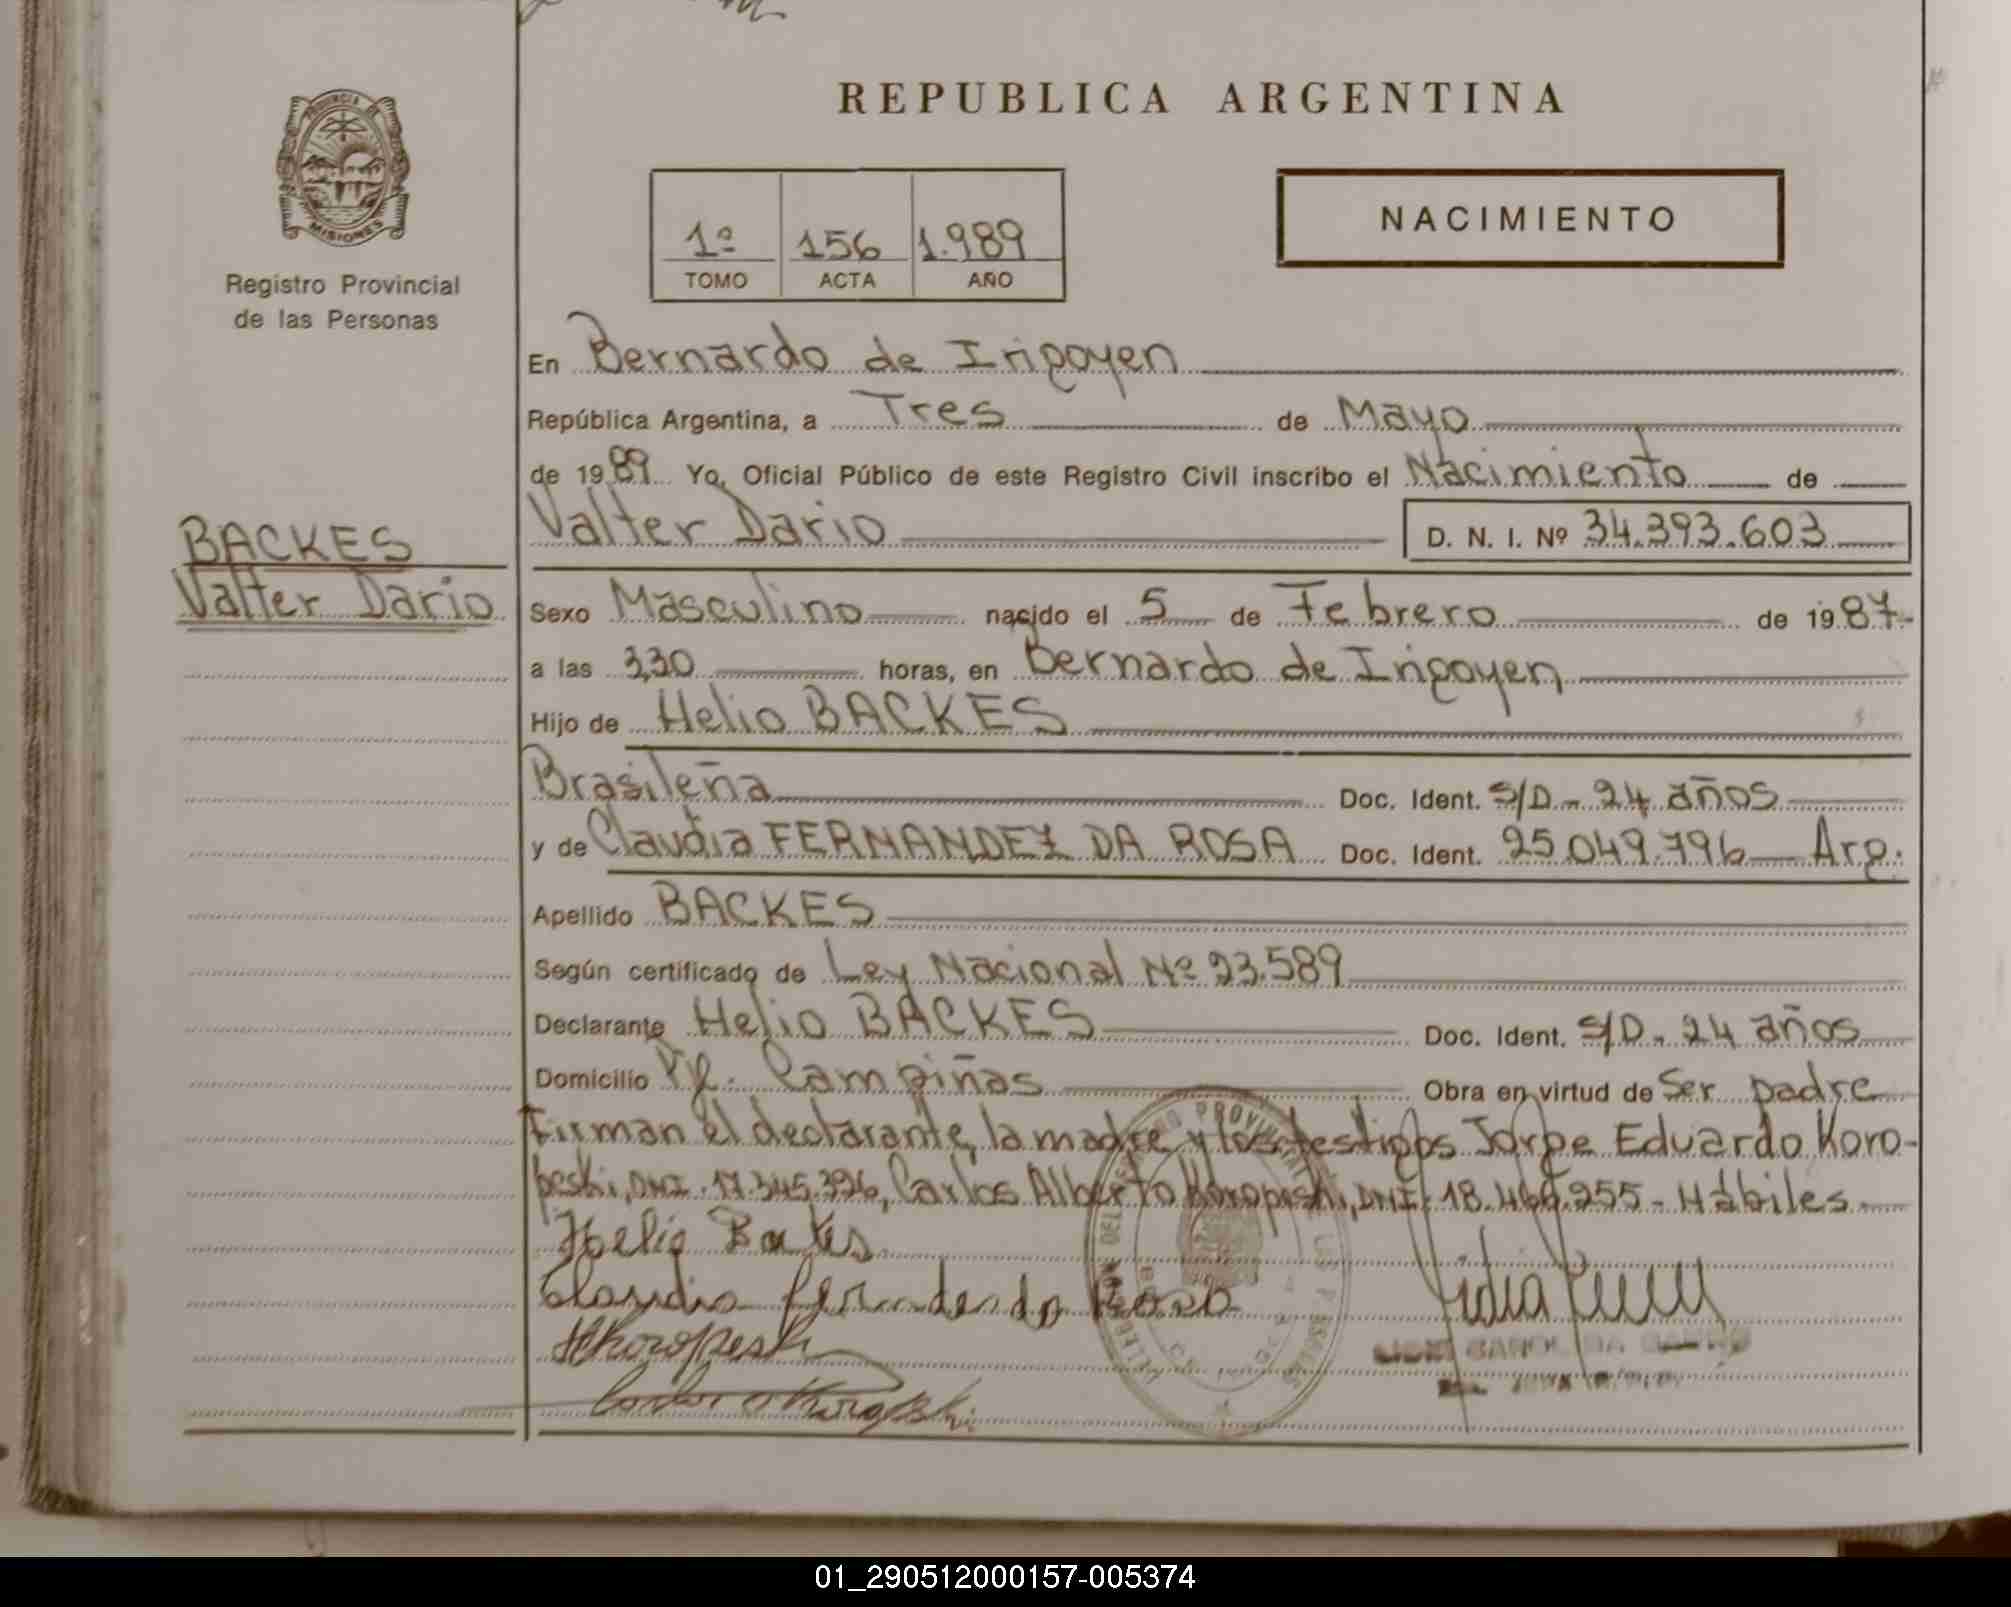 PROVINCIA
MISIONES
Registro Provincial
de las Personas
BACKES
Valter Dario
REPUBLICA ARGENTINA
1º 156 1.989
TOMO ACTA AÑO
NACIMIENTO
En Bernardo de Irigoyen
República Argentina, a Tres de Mayo
de 1989 Yo, Oficial Público de este Registro Civil inscribo el Nacimiento de
Valter Dario D. N. I. Nº 34.393.603
Sexo Masculino nacido el 5 de Febrero de 1987-
a las 3,30 horas, en Bernardo de Irigoyen
Hijo de Helio BACKES
Brasileña Doc. Ident. S/D - 24 años
y de Claudia FERNANDEZ DA ROSA Doc. Ident. 25.049.796 Arg.
Apellido BACKES
Según certificado de Ley Nacional Nº 23.589
Declarante Helio BACKES Doc. Ident. S/D - 24 años
Domicilio Campiñas Obra en virtud de Ser padre
Firman el declarante, la madre y los testigos Jorge Eduardo Koro-
peski, DNI. 17.345.396, Carlos Alberto Koropeski, DNI 18.466.255 - Hábiles
Helio Bakes
Claudia Fernandes da Rosa
01_290512000157-005374